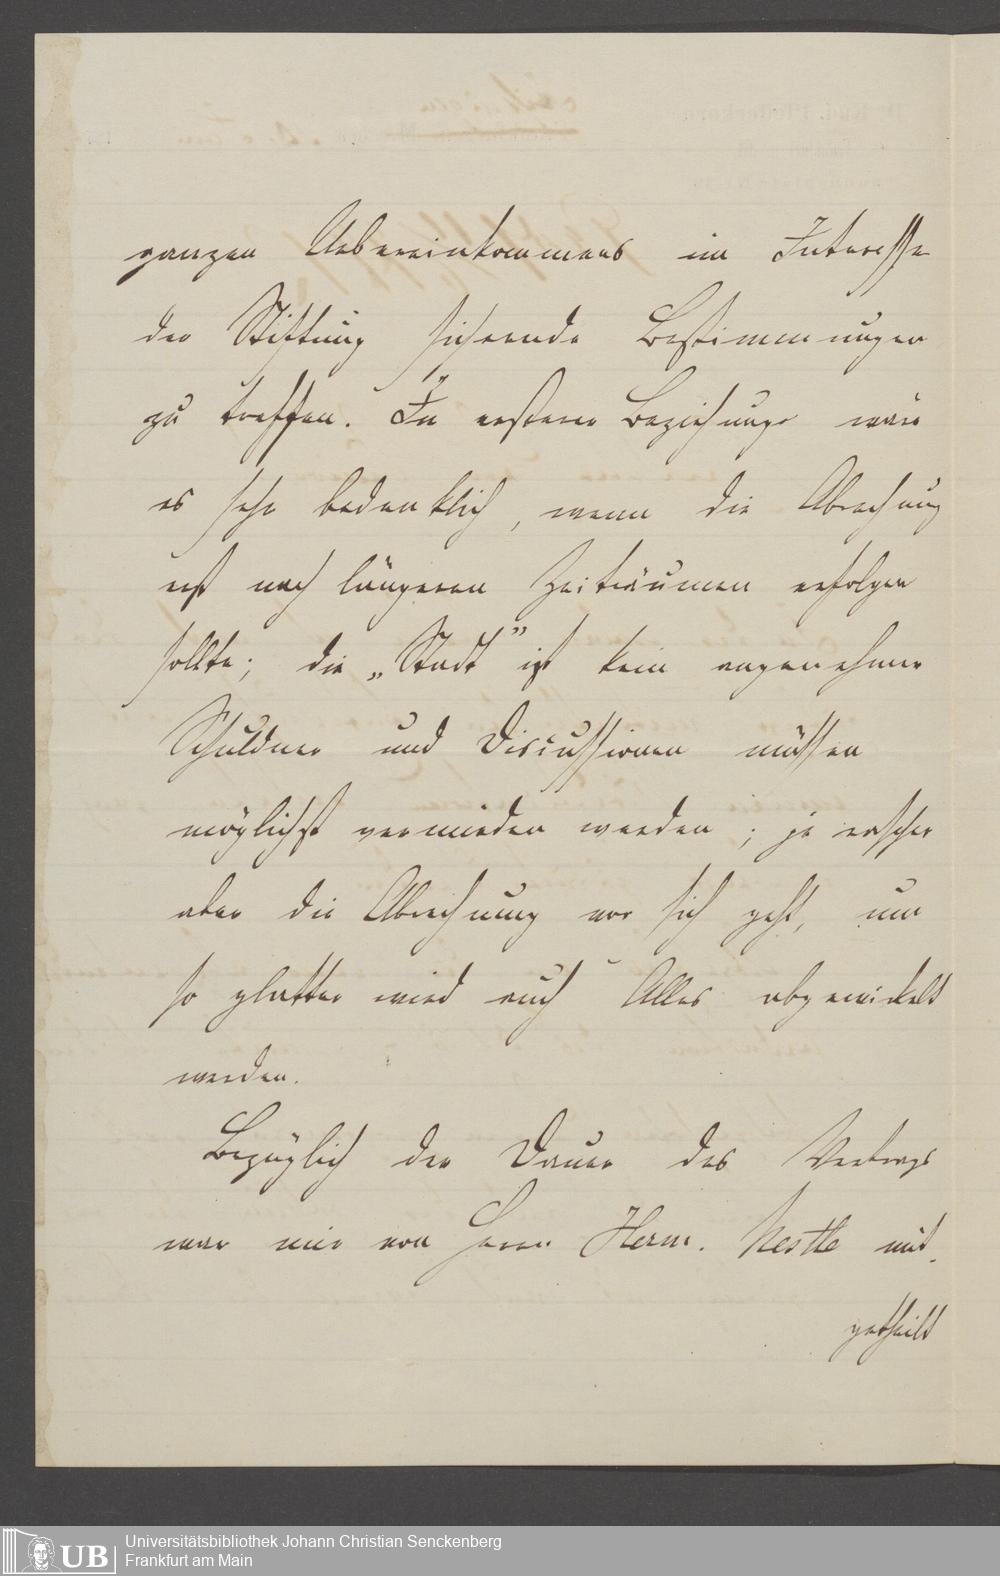 ganzen Uebereinkommens im Interesse
der Stiftung sichernde Bestimmungen
zu treffen. In ersterer Beziehung wäre
es sehr bedenklich, wenn die Abrechnung
erst nach längeren Zeiträumen erfolgen
sollte; die „Stadt” ist kein angenehmer
Schuldner und Discussionen müssen
möglichst vermieden werden; je rascher
aber die Abrechnung vor sich geht, um
so glatter wird auch Alles abgewickelt
werden.
Bezüglich der Dauer des Vertrags
war mir von Herrn Herm. Nestle mit-
getheilt
UB
Universitätsbibliothek Johann Christian Senckenberg
Frankfurt am Main